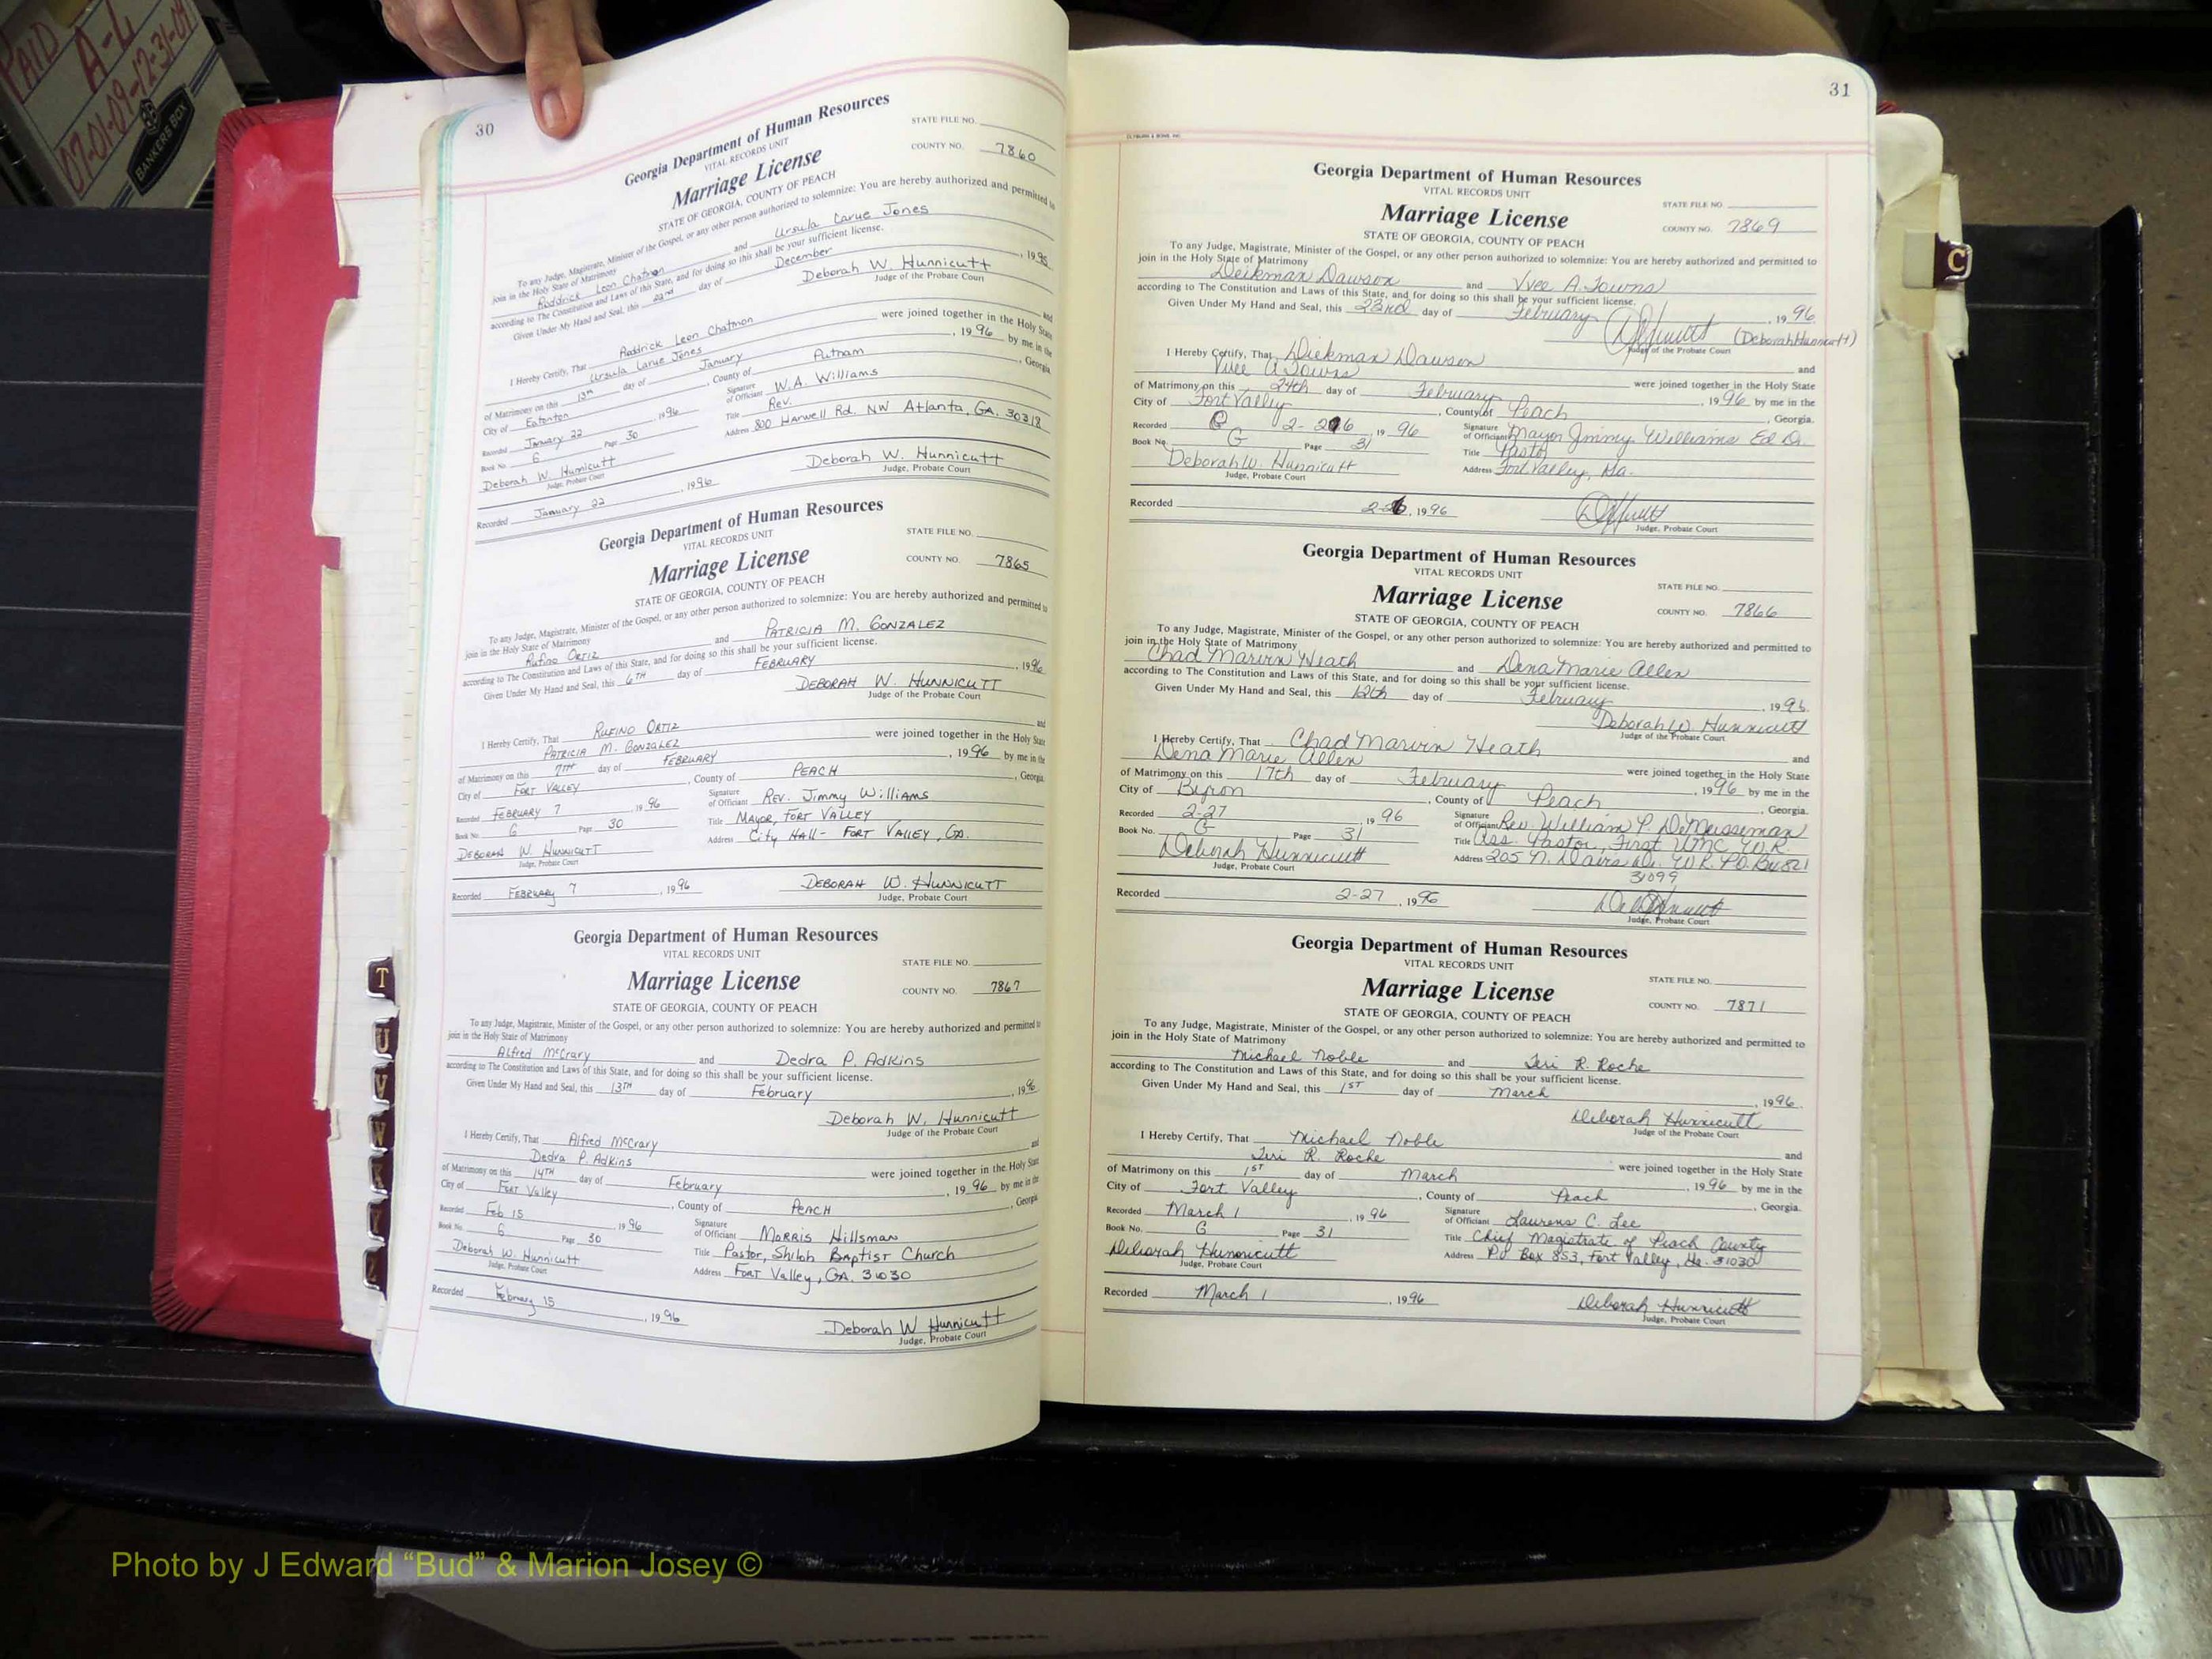 PAID
A-L
07-01-09-12-31-09
BANKERS BOX
30
Georgia Department of Human Resources
VITAL RECORDS UNIT
Marriage License
STATE OF GEORGIA, COUNTY OF PEACH
STATE FILE NO.
COUNTY NO. 7860
To any Judge, Magistrate, Minister of the Gospel, or any other person authorized to solemnize: You are hereby authorized and permitted to
join in the Holy State of Matrimony
Roddrick Leon Chatmon and Ursula Larue Jones
according to The Constitution and Laws of this State, and for doing so this shall be your sufficient license.
Given Under My Hand and Seal, this 22nd day of December, 1995
Deborah W. Hunnicutt
Judge of the Probate Court
I Hereby Certify, That Roddrick Leon Chatmon and
Ursula Larue Jones were joined together in the Holy State
of Matrimony on this 13th day of January, 1996 by me in the
City of Eatonton, County of Putnam, Georgia
Recorded January 22, 1996 Signature of Officiant W.A. Williams
Book No. G Page 30 Title Rev.
Deborah W. Hunnicutt Address 800 Harwell Rd. NW Atlanta, GA. 30318
Judge, Probate Court
Recorded January 22, 1996 Deborah W. Hunnicutt
Judge, Probate Court
Georgia Department of Human Resources
VITAL RECORDS UNIT
Marriage License
STATE OF GEORGIA, COUNTY OF PEACH
STATE FILE NO.
COUNTY NO. 7865
To any Judge, Magistrate, Minister of the Gospel, or any other person authorized to solemnize: You are hereby authorized and permitted to
join in the Holy State of Matrimony
Rufino ORTIZ and PATRICIA M. GONZALEZ
according to The Constitution and Laws of this State, and for doing so this shall be your sufficient license.
Given Under My Hand and Seal, this 6TH day of FEBRUARY, 1996
DEBORAH W. HUNNICUTT
Judge of the Probate Court
I Hereby Certify, That RUFINO ORTIZ and
PATRICIA M. GONZALEZ were joined together in the Holy State
of Matrimony on this 7TH day of FEBRUARY, 1996 by me in the
City of FORT VALLEY, County of PEACH, Georgia
Recorded FEBRUARY 7, 1996 Signature of Officiant REV. Jimmy WILLIAMS
Book No. G Page 30 Title MAYOR, FORT VALLEY
DEBORAH W. HUNNICUTT Address City HALL - FORT VALLEY, GA.
Judge, Probate Court
Recorded FEBRUARY 7, 1996 DEBORAH W. HUNNICUTT
Judge, Probate Court
Georgia Department of Human Resources
VITAL RECORDS UNIT
Marriage License
STATE OF GEORGIA, COUNTY OF PEACH
STATE FILE NO.
COUNTY NO. 7867
To any Judge, Magistrate, Minister of the Gospel, or any other person authorized to solemnize: You are hereby authorized and permitted to
join in the Holy State of Matrimony
Alfred McCrary and Dedra P. Adkins
according to The Constitution and Laws of this State, and for doing so this shall be your sufficient license.
Given Under My Hand and Seal, this 13TH day of February, 1996
Deborah W. Hunnicutt
Judge of the Probate Court
I Hereby Certify, That Alfred McCrary and
Dedra P. Adkins were joined together in the Holy State
of Matrimony on this 14TH day of February, 1996 by me in the
City of FORT Valley, County of PEACH, Georgia
Recorded Feb 15 1996 Signature of Officiant MORRIS Hillsman
Book No. G Page 30 Title Pastor, Shiloh Baptist Church
Deborah W. Hunnicutt Address FORT Valley, GA. 31030
Judge, Probate Court
Recorded February 15, 1996 Deborah W Hunnicutt
Judge, Probate Court
T
U
V
W
Y
Z
31
Georgia Department of Human Resources
VITAL RECORDS UNIT
Marriage License
STATE OF GEORGIA, COUNTY OF PEACH
STATE FILE NO.
COUNTY NO. 7869
To any Judge, Magistrate, Minister of the Gospel, or any other person authorized to solemnize: You are hereby authorized and permitted to
join in the Holy State of Matrimony
Diekman Dawson and Vvee A. Towns
according to The Constitution and Laws of this State, and for doing so this shall be your sufficient license.
Given Under My Hand and Seal, this 23rd day of February, 1996
(Deborah Hunnicutt)
Judge of the Probate Court
I Hereby Certify, That Diekman Dawson and
Vvee A Towns were joined together in the Holy State
of Matrimony on this 24th day of February, 1996 by me in the
City of Fort Valley, County of Peach, Georgia.
Recorded 2-26, 1996 Signature of Officiant Mayor Jimmy Williams Ed D.
Book No. G Page 31 Title Pastor
Deborah W. Hunnicutt Address Fort Valley, Ga.
Judge, Probate Court
Recorded 2-26, 1996
Judge, Probate Court
C
Georgia Department of Human Resources
VITAL RECORDS UNIT
Marriage License
STATE OF GEORGIA, COUNTY OF PEACH
STATE FILE NO.
COUNTY NO. 7866
To any Judge, Magistrate, Minister of the Gospel, or any other person authorized to solemnize: You are hereby authorized and permitted to
join in the Holy State of Matrimony
Chad Marvin Heath and Dena Marie Allen
according to The Constitution and Laws of this State, and for doing so this shall be your sufficient license.
Given Under My Hand and Seal, this 12th day of February, 1996.
Deborah W. Hunnicutt
Judge of the Probate Court
I Hereby Certify, That Chad Marvin Heath and
Dena Marie Allen were joined together in the Holy State
of Matrimony on this 17th day of February, 1996 by me in the
City of Byron, County of Peach, Georgia.
Recorded 2-27 1996 Signature of Officiant Rev. William P. DeMeisseman
Book No. G Page 31 Title Ass. Pastor, First UMC W.R.
Deborah Hunnicutt Address 205 N. Davis Dr. W.R. P.O. Bx 821
31099
Judge, Probate Court
Recorded 2-27, 1996
Judge, Probate Court
Georgia Department of Human Resources
VITAL RECORDS UNIT
Marriage License
STATE OF GEORGIA, COUNTY OF PEACH
STATE FILE NO.
COUNTY NO. 7871
To any Judge, Magistrate, Minister of the Gospel, or any other person authorized to solemnize: You are hereby authorized and permitted to
join in the Holy State of Matrimony
Michael Noble and Teri R. Roche
according to The Constitution and Laws of this State, and for doing so this shall be your sufficient license.
Given Under My Hand and Seal, this 1ST day of March, 1996.
Deborah Hunnicutt
Judge of the Probate Court
I Hereby Certify, That Michael Noble and
Teri R. Roche were joined together in the Holy State
of Matrimony on this 1ST day of March, 1996 by me in the
City of Fort Valley, County of Peach, Georgia.
Recorded March 1, 1996 Signature of Officiant Laurens C. Lee
Book No. G Page 31 Title Chief Magistrate of Peach County
Deborah Hunnicutt Address PO Box 853, Fort Valley, Ga. 31030
Judge, Probate Court
Recorded March 1, 1996 Deborah Hunnicutt
Judge, Probate Court
Photo by J Edward “Bud” & Marion Josey ©